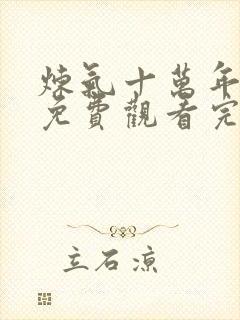 煉氣十萬年
免費觀看完
立石涼